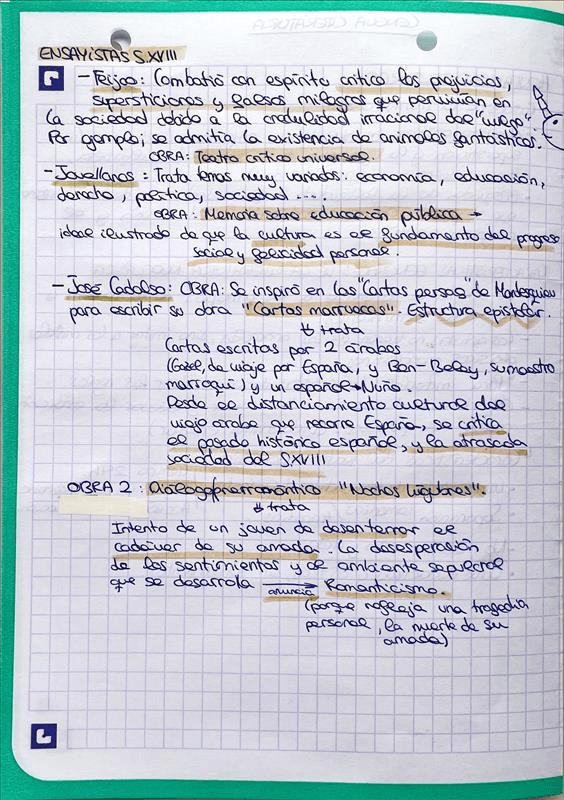 ENSAYISTAS S.XVIII
- Feijoo: Combatió con espíritu crítico los prejuicios,
supersticiones y falsos milagros que pervivían en
la sociedad debido a la credulidad irracional del "vulgo".
Por ejemplo; se admitía la existencia de animales fantásticos.
OBRA: Teatro crítico universal.
- Jovellanos: Trata temas muy variados: economía, educación,
derecho, política, sociedad ....
OBRA: Memoria sobre educación pública →
ideal ilustrado de que la cultura es el fundamento del progreso
social y felicidad personal.
- José Cadalso: OBRA: Se inspiró en las "Cartas persas" de Montesquieu
para escribir su obra "Cartas marruecas". Estructura epistolar.
↓ trata
Cartas escritas por 2 árabes
(Gazel, de viaje por España, y Ben-Belay, su maestro
marroquí) y un español → Nuño.
Desde el distanciamiento cultural del
viaje árabe que recorre España, se critica
el pasado histórico español, y la atrasada
sociedad del S.XVIII
OBRA 2: Diálogo prerromántico "Noches lúgubres".
↓ trata
Intento de un joven de desenterrar el
cadáver de su amada. La desesperación
de los sentimientos y el ambiente sepulcral
que se desarrolla → anuncia Romanticismo.
(porque refleja una tragedia
personal, la muerte de su
amada)